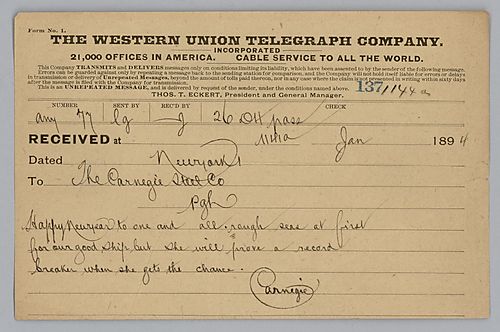 Form No. 1.
THE WESTERN UNION TELEGRAPH COMPANY.
INCORPORATED
21,000 OFFICES IN AMERICA. CABLE SERVICE TO ALL THE WORLD.
This Company TRANSMITS and DELIVERS messages only on conditions limiting its liability, which have been assented to by the sender of the following message.
Errors can be guarded against only by repeating a message back to the sending station for comparison, and the Company will not hold itself liable for errors or delays
in transmission or delivery of Unrepeated Messages, beyond the amount of tolls paid thereon, nor in any case where the claim is not presented in writing within sixty days
after the message is filed with the Company for transmission.
This is an UNREPEATED MESSAGE, and is delivered by request of the sender, under the conditions named above.
THOS. T. ECKERT, President and General Manager.
137 1144 a
NUMBER SENT BY REC'D BY CHECK
any 77 lg J 26 DH pass
RECEIVED at 1141a Jan 1894
Dated Newyork 1
To The Carnegie Steel Co
Pgh
Happy Newyear to one and all. rough seas at first
for our good ship but she will prove a record
breaker when she gets the chance.
Carnegie